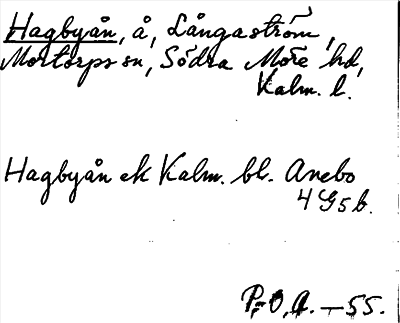 Hagbyån, å, Långaström,
Mortorps sn, Södra Möre hd,
Kalm. l.
Hagbyån ek Kalm. bl. Anebo
4 G 5 b.
P. O. A. -55.